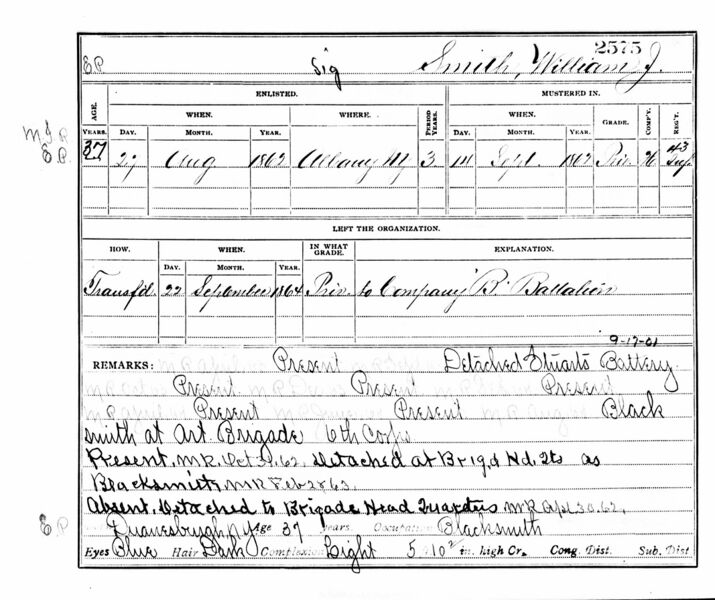 2575
E.P. Sig Smith, William J.
AGE. ENLISTED. MUSTERED IN.
YEARS. WHEN. WHERE. PERIOD YEARS. WHEN. GRADE. COMP'Y. REG'T.
DAY. MONTH. YEAR. DAY. MONTH. YEAR.
E.P. 37 27 Aug 1862 Albany NY 3 Sept. 1862 Priv. 43 Inf.
LEFT THE ORGANIZATION.
HOW. WHEN. IN WHAT GRADE. EXPLANATION.
DAY. MONTH. YEAR.
Transfd. 22 September 1864 Priv. to Company "B" Battalion
9-17-01
REMARKS: Present Detached Stuarts Battery.
Present Present Present
Present Present Black
smith at Art. Brigade 6th Corps
Present. M.R. Oct 31, 62. Detached at Brig.d Hd. Qts as
Blacksmith, M.R. Feb 28 63.
Absent. Detached to Brigade Head Quarters M.R. Apl 30. 62.
E.P. Duanesburgh, N.Y. Age 37 years. Occupation Blacksmith
Eyes Blue Hair Dark Complexion Light 5 10 in. high Cr. Cong. Dist. Sub. Dist